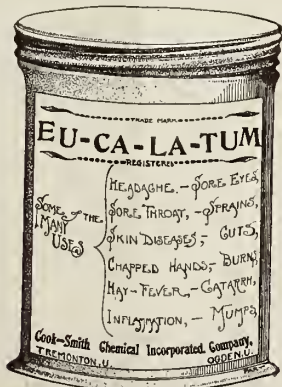 TRADE MARK
EU-CA-LA-TUM
REGISTERED
SOME of THE
MANY
USES
HEADAGHE.-SORE EYES,
SORE THROAT, -SPRAINS,
SKIN DISEASES,- CUTS,
CHAPPED HANDS,- BURNS
HAY-FEVER,-CATARRH,
INFLAMMATION,- MUMPS,
Cook-Smith Chemical Incorporated Company,
TREMONTON, U. OGDEN, U.